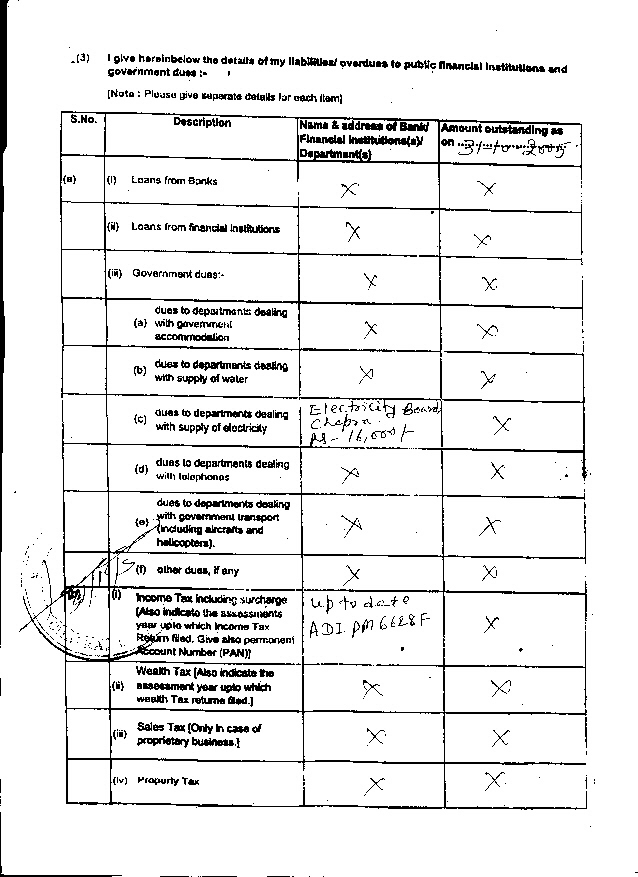 (3) I give hereinbelow the details of my liabilities/ overdues to public financial institutions and
government dues :-
[Note : Please give separate details for each item]
S.No. Description Name & address of Bank/ Amount outstanding as
Financial Institutions(s)/ on 31-10-2005
Department(s)
(a) (i) Loans from Banks X X
(ii) Loans from financial institutions X X
(iii) Government dues:- X X
dues to departments dealing
(a) with government X X
accommodation
(b) dues to departments dealing X X
with supply of water
(c) dues to departments dealing Electricity Board X
with supply of electricity Chapra
Rs- 16,000/-
(d) dues to departments dealing X X
with telephones
dues to departments dealing
(e) with government transport X X
(including aircrafts and
helicopters).
(f) other dues, if any X X
(i) Income Tax including surcharge up to date X
[Also indicate the assessments
year upto which Income Tax
Return filed. Give also permanent
Account Number (PAN)]
Wealth Tax [Also indicate the
(ii) assessment year upto which X X
wealth Tax returns filed.]
(iii) Sales Tax [Only in case of X X
proprietary business.]
(iv) Property Tax X X